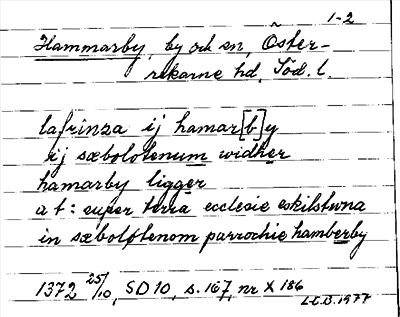 1-2
Hammarby, by och sn, Öster-
rekarne hd, Söd. l.
lafrinza ij hamar[b]y
ij sæbolotenum widher
hamarby ligger
at: super terra ecclesie eskilstwna
in sæbolotenom parrochie hamberby
1372 25/10, SD 10, s. 167, nr X 186
L.E.B. 1977